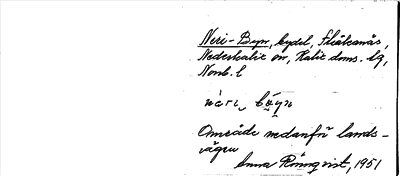 Neri-Byn, bydel, Fläkanäs,
Nederkalix sn, Kalix doms. lg,
Nonb. l
nèri, båyn
Område nedanför lands-
vägen
Anna Rönnqvist, 1951